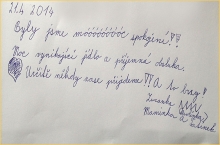 21.4 2014
Byly jsme móóóóóóóc spokojené!!!
Moc vynikající jídlo a příjemná obsluha.
Určitě někdy zase přijedeme!!! A to brzy!
Zuzanka
Maminka